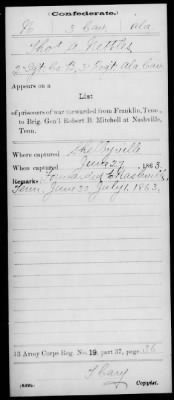 Confederate.
3 Cav. Ala.
Thos A Nettles
2 Sgt. Co B, 3 Regt. Ala Cav.
Appears on a
List
of prisoners of war forwarded from Franklin, Tenn.,
to Brig. Gen'l Robert B. Mitchell at Nashville,
Tenn.
Where captured Shelbyville
When captured June 27, 1863.
Remarks: Forwarded to Nashville
Tenn. June 30, July 1, 1863.
13 Army Corps Reg. No. 19, part 37, page 36
Copyist.